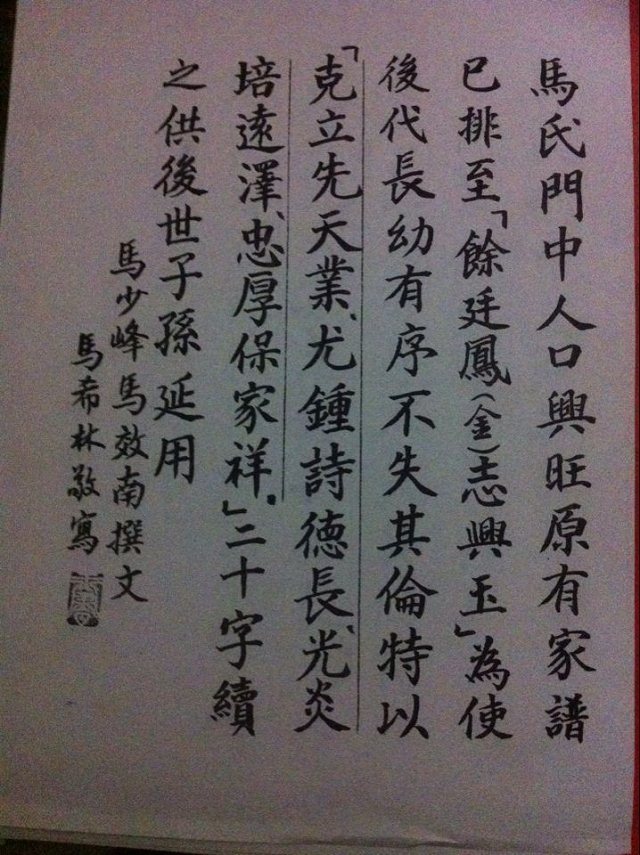 馬氏門中人口興旺原有家譜
已排至「餘廷鳳(金)志興玉」為使
後代長幼有序不失其倫特以
「克立先天業、尤鍾詩德長、光炎
培遠澤、忠厚保家祥。」二十字續
之供後世子孫延用
馬少峰馬效南撰文
馬希林敬寫